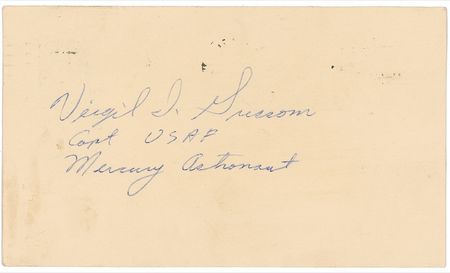 Virgil I. Grissom
Capt USAF
Mercury Astronaut